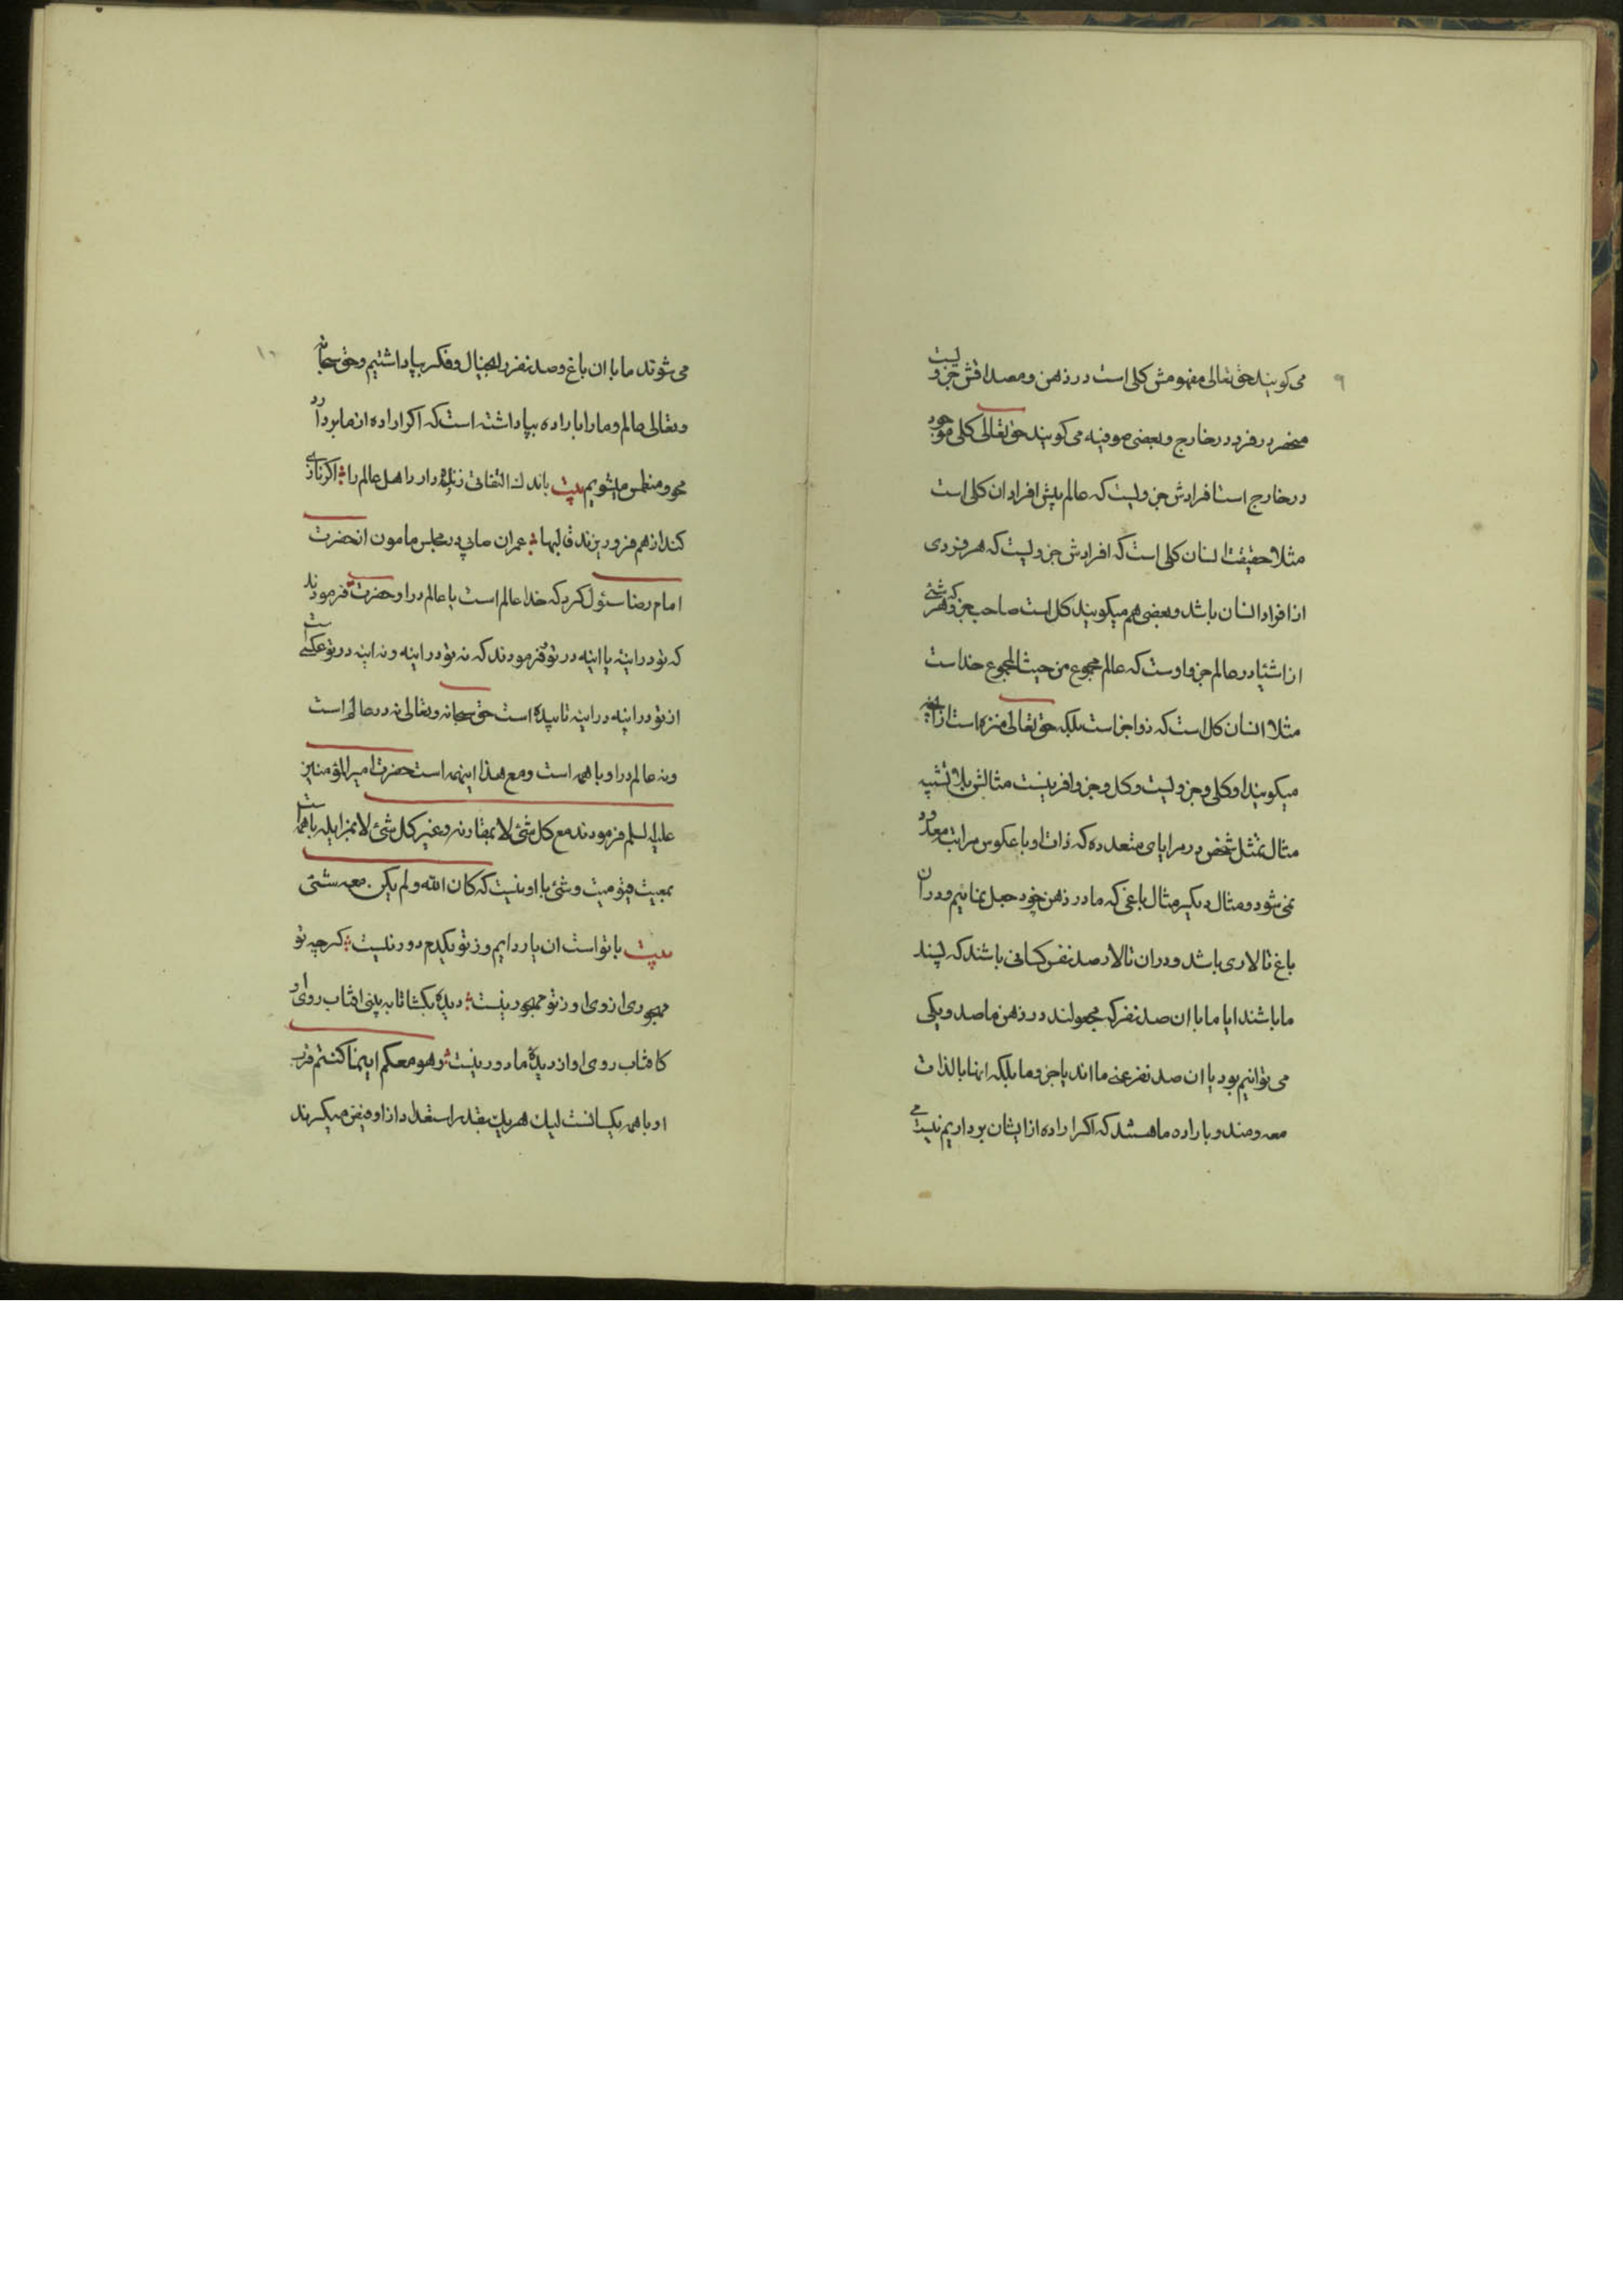 ۹
می کویند حق تعالی مفهومش کلی است در ذهن و مصداقش جزو لیت
منحصر در فرد در خارج و بعضی صوفیه می کویند حق تعالی کلی موجود
در خارج است افرادش جزولیت که عالم پیش افراد ان کلی است
مثلا حقیقت انسان کلی است که افرادش جزولیت که هر فردی
از افراد انسان باشد و بعضی هم میکویند کل است صاحب جزو که هر شئ
از اشیا در عالم جزو اوست که عالم مجموع من حیث المجموع خداست
مثلا انسان کل است که ذو اجزاست بلکه حق تعالی منزه است از آنچه
میکویند او کلی و جزولیت و کل و جزو افرینست مثالش بلا تشبیه
مثال تمثل شخص در مرایای متعدده که ذات او با عکوس مراتب معدود
نمی شود و مثال دیکر مثال باغی که ما در ذهن خود جعل نمائیم و در ان
باغ تالاری باشد و در ان تالار صد نفر کسانی باشند که پسند
ما باشند ایا ما با ان صد نفر که مجعولند در ذهن ما صد و یکی
می توانیم بود یا ان صد نفر عین ما اند یا جزو ما بلکه انها بالذات
معدومند و باراده ما هستند که اکر اراده از ایشان برداریم نیست می
۱۰
می شوند ما با ان باغ و صد نفر را بخیال و فکر بپا داشتیم و حق سبحانه
و تعالی عالم و ما را باراده بپا داشته است که اکر اراده از ما بردارد
محو و منطمس میشویم بیت باندک التفاتی زنده دارد اهل عالم را اکر نازی
کند از هم فرو ریزند قالبها عمران صابی در مجلس مامون از حضرت
امام رضا سئول کرد که خدا عالم است یا عالم در او حضرت فرمودند
که تو در اینه یا اینه در تو فرمودند که نه تو در اینه و نه اینه در تو عکسی است
از تو در اینه در اینه تابیده است حق سبحانه و تعالی نه در عالم است
و نه عالم در او با همه است و مع هذا اینهمه است حضرت امیر المؤمنین
علیه السلم فرمودند مع کل شئ لا بمقارنه و غیر کل شئ لا بمزایله با همه است
بمعیت قیومیت و شئ با او نیست که کان الله و لم یکن معه شئ
بیت با تو است ان یار دایم وز تو یکدم دور نیست کر چه تو
مهجوری از وی او ز تو مهجور نیست دیده بکشا تا به بینی افتاب روی او
کافتاب روی او از دیده ما دور نیست وهو معکم اینما کنتم قرب
او با همه یکسانست لیک هر یک بقدر استعداد از او فیض میکیرند